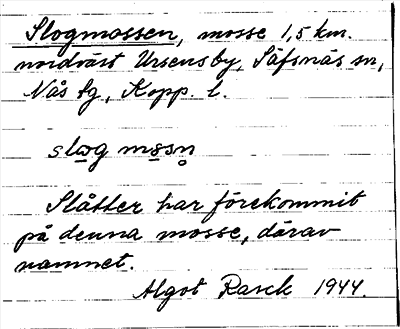 Slogmossen, mosse 1,5 km.
nordväst Ursensby, Säfsnäs sn,
Nås hg, Kopp. l.
slog
Slåtter har förekommit
på denna mosse, därav
namnet.
Algot Rasck 1944.